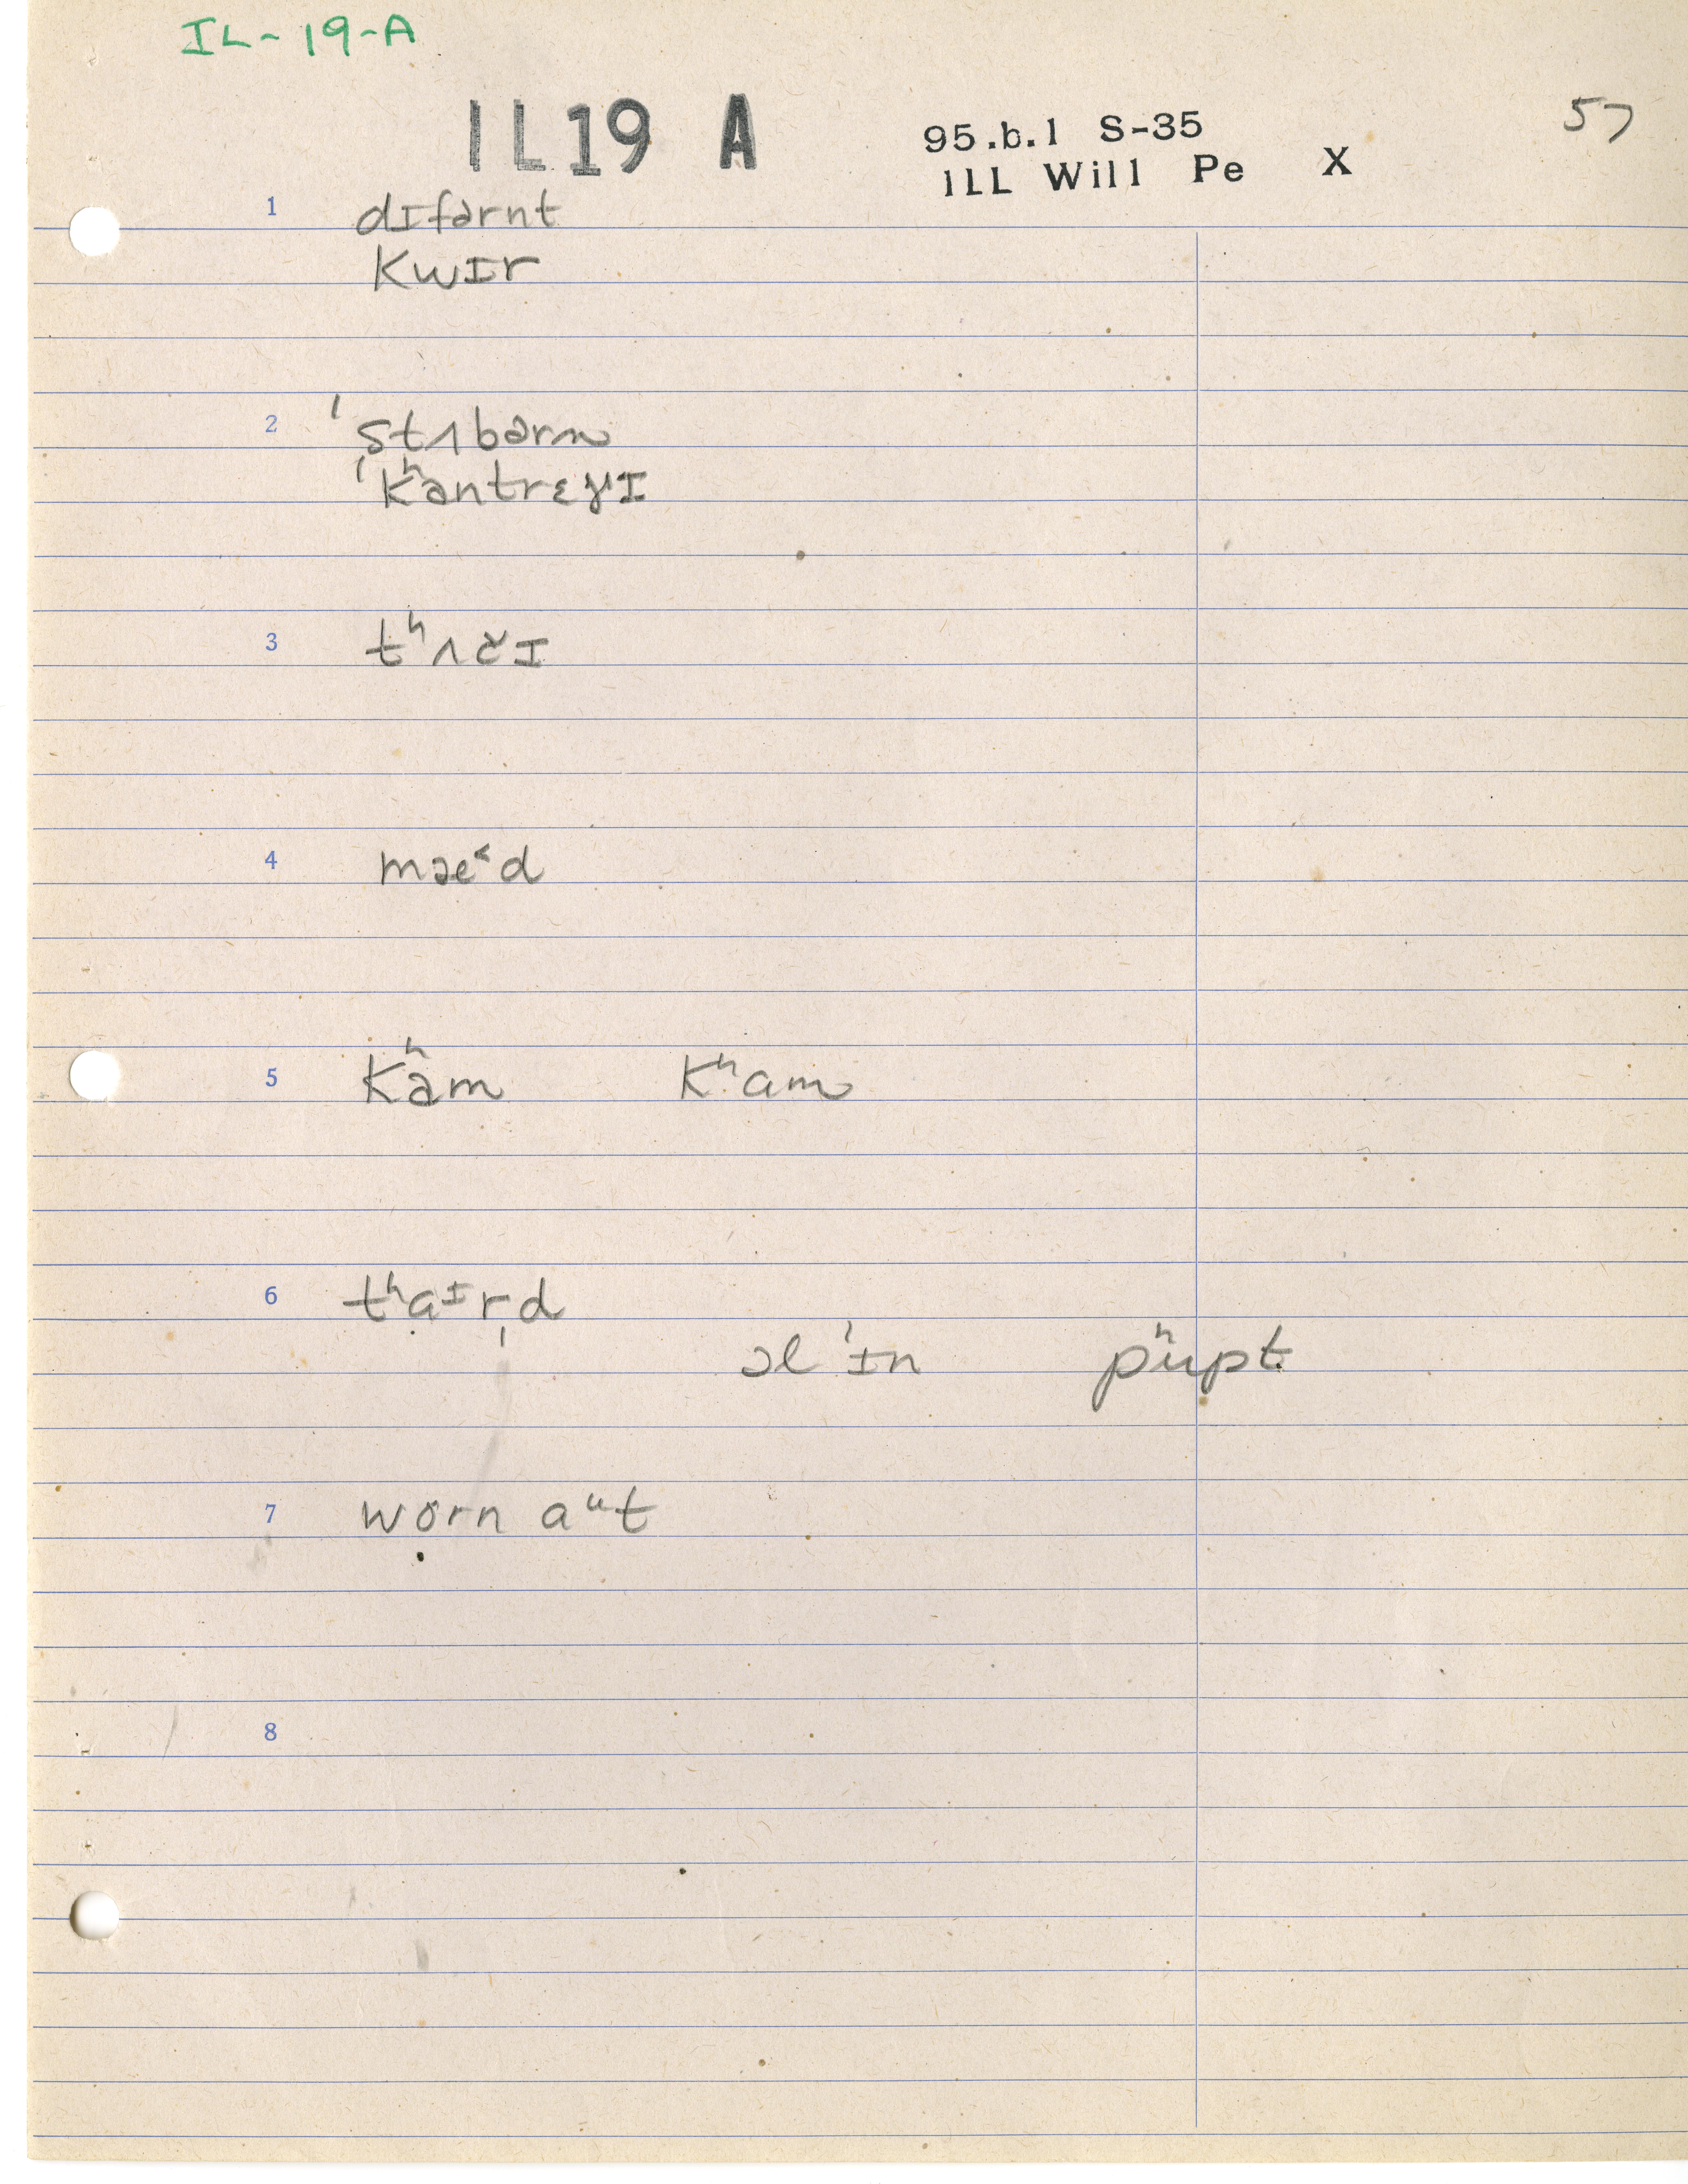 IL-19-A
IL19 A
95.b.1 S-35
ILL Will Pe X
57
1 dɪfərnt
kwɪr
2 ˈstʌbərn
ˈkʰəntrɛɾɪ
3 tʰʌčɪ
4 mæ˂d
5 kʰəm kʰɑm
6 tʰaᶦr̩d
ɔl ˈɪn pʰupt
7 wọrn aᵘt
8